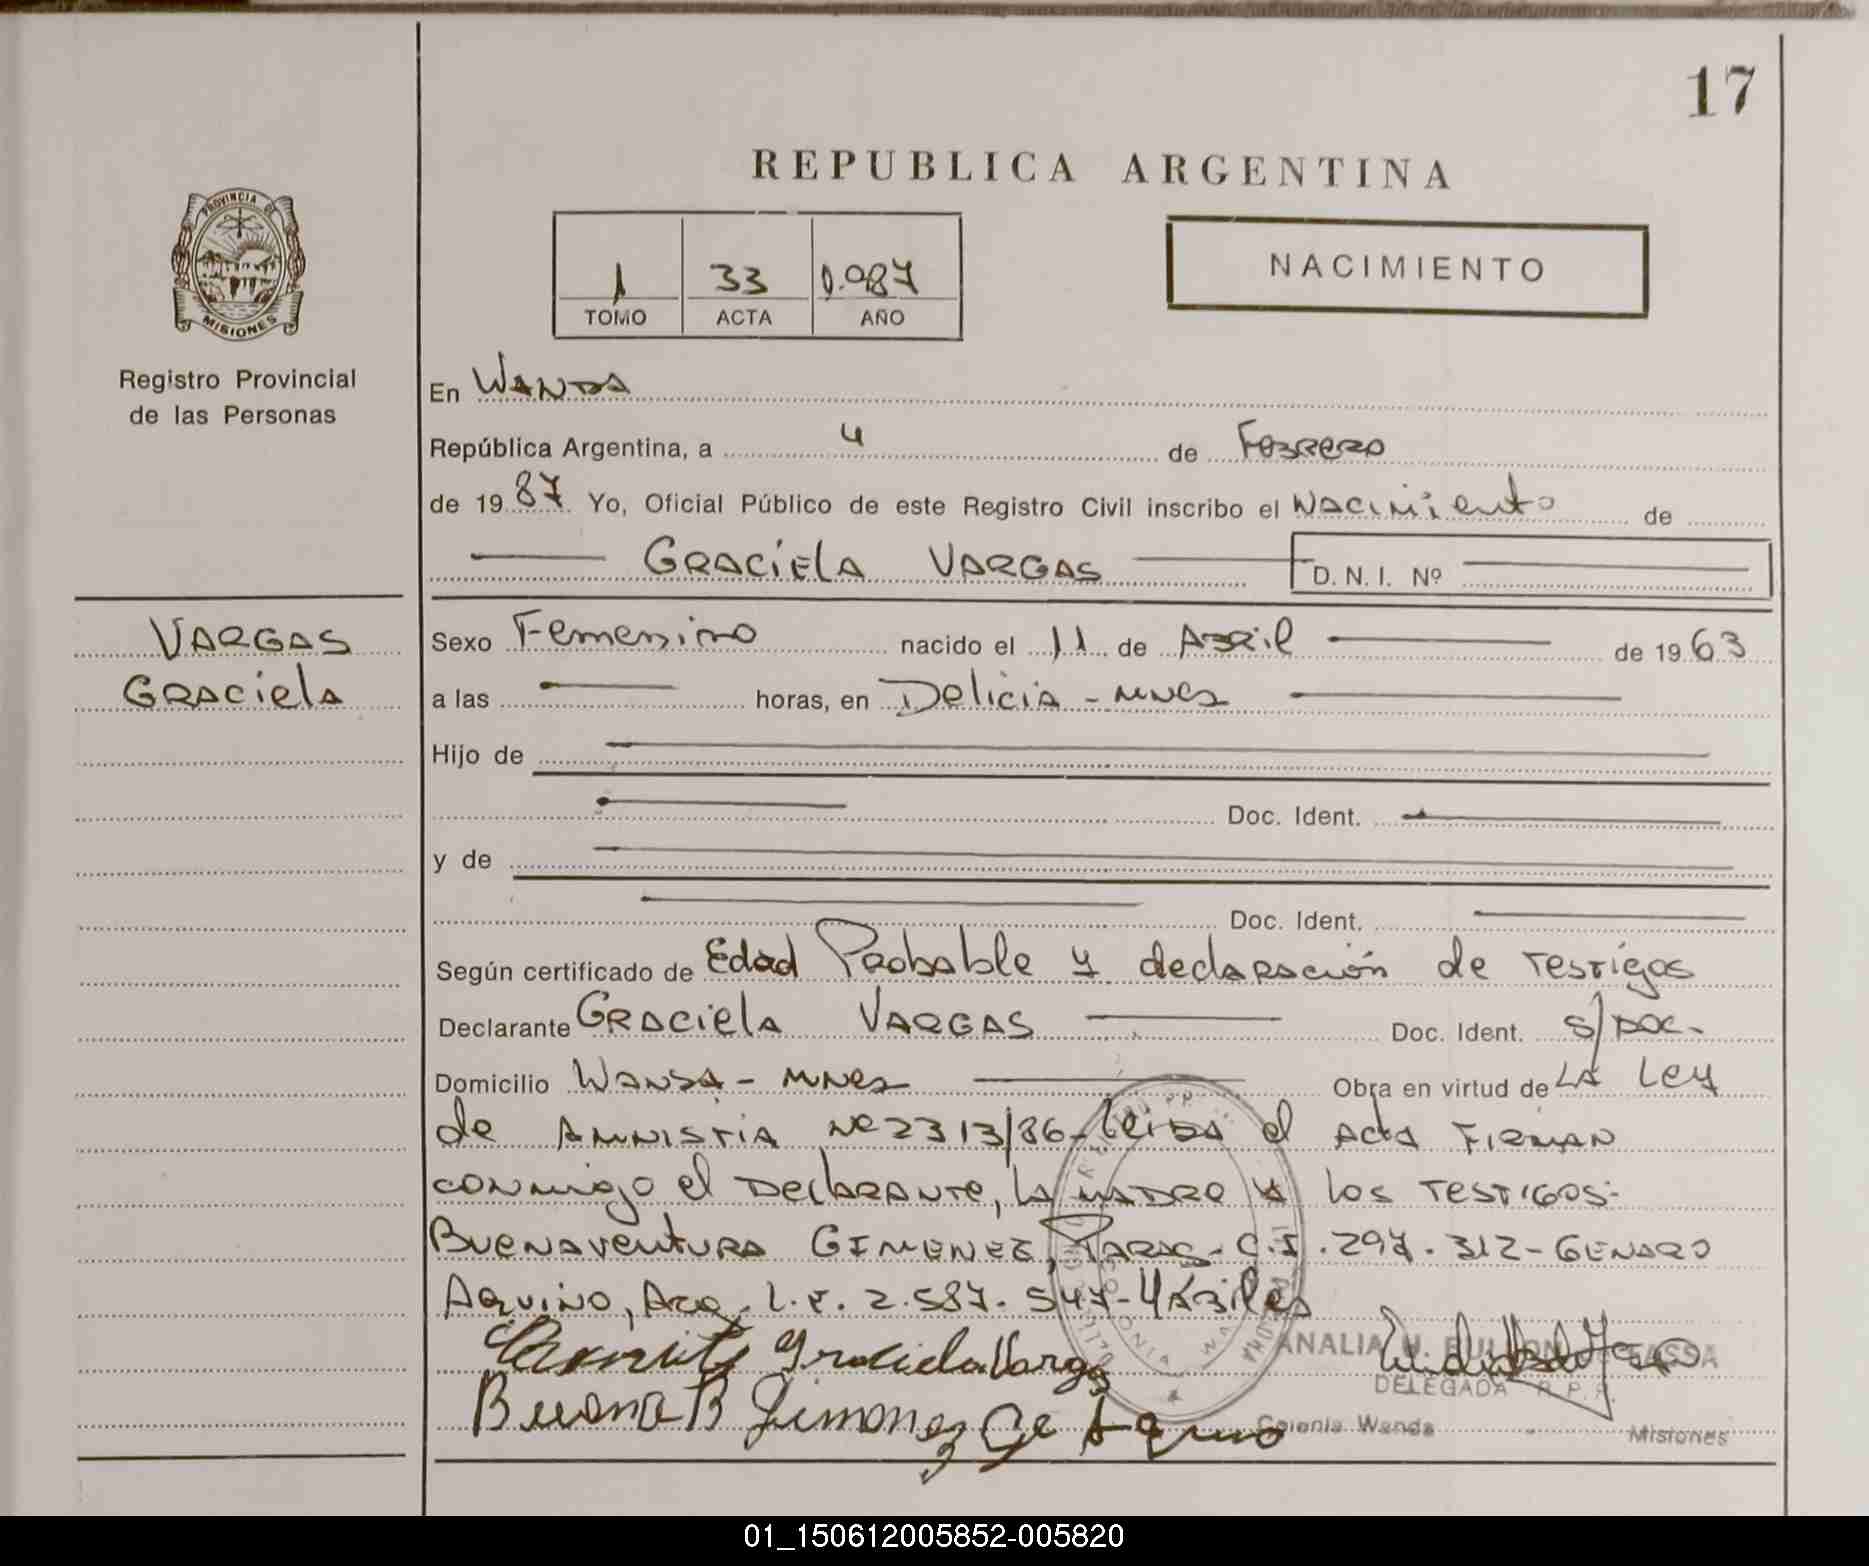 17
REPUBLICA ARGENTINA
PROVINCIA DE
MISIONES
1 33 1.987
TOMO ACTA AÑO
NACIMIENTO
Registro Provincial
de las Personas
En WANDA
República Argentina, a 4 de Febrero
de 1987 Yo, Oficial Público de este Registro Civil inscribo el Nacimiento de
GRACIELA VARGAS D. N. I. Nº
VARGAS
Graciela
Sexo Femenino nacido el 11 de Abril de 1963
a las horas, en Delicia - Mnes
Hijo de
Doc. Ident.
y de
Doc. Ident.
Según certificado de Edad Probable y declaración de testigos
Declarante Graciela VARGAS Doc. Ident. S/Doc.-
Domicilio Wanda - Mnes Obra en virtud de LA Ley
de AMNISTIA Nº 2313/86-Leida el Acta FIRMAN
conmigo el Declarante, la madre y los testigos:
Buenaventura GIMENEZ, Parag. C.I. 297.312-Genaro
Aquino, Arg. L.E. 2.587.547-Hábiles
Graciela Vargas
Buena B Jimenez Ge Aquino
ANALIA
DELEGADA R.P.P.
Colonia Wanda Misiones
01_150612005852-005820